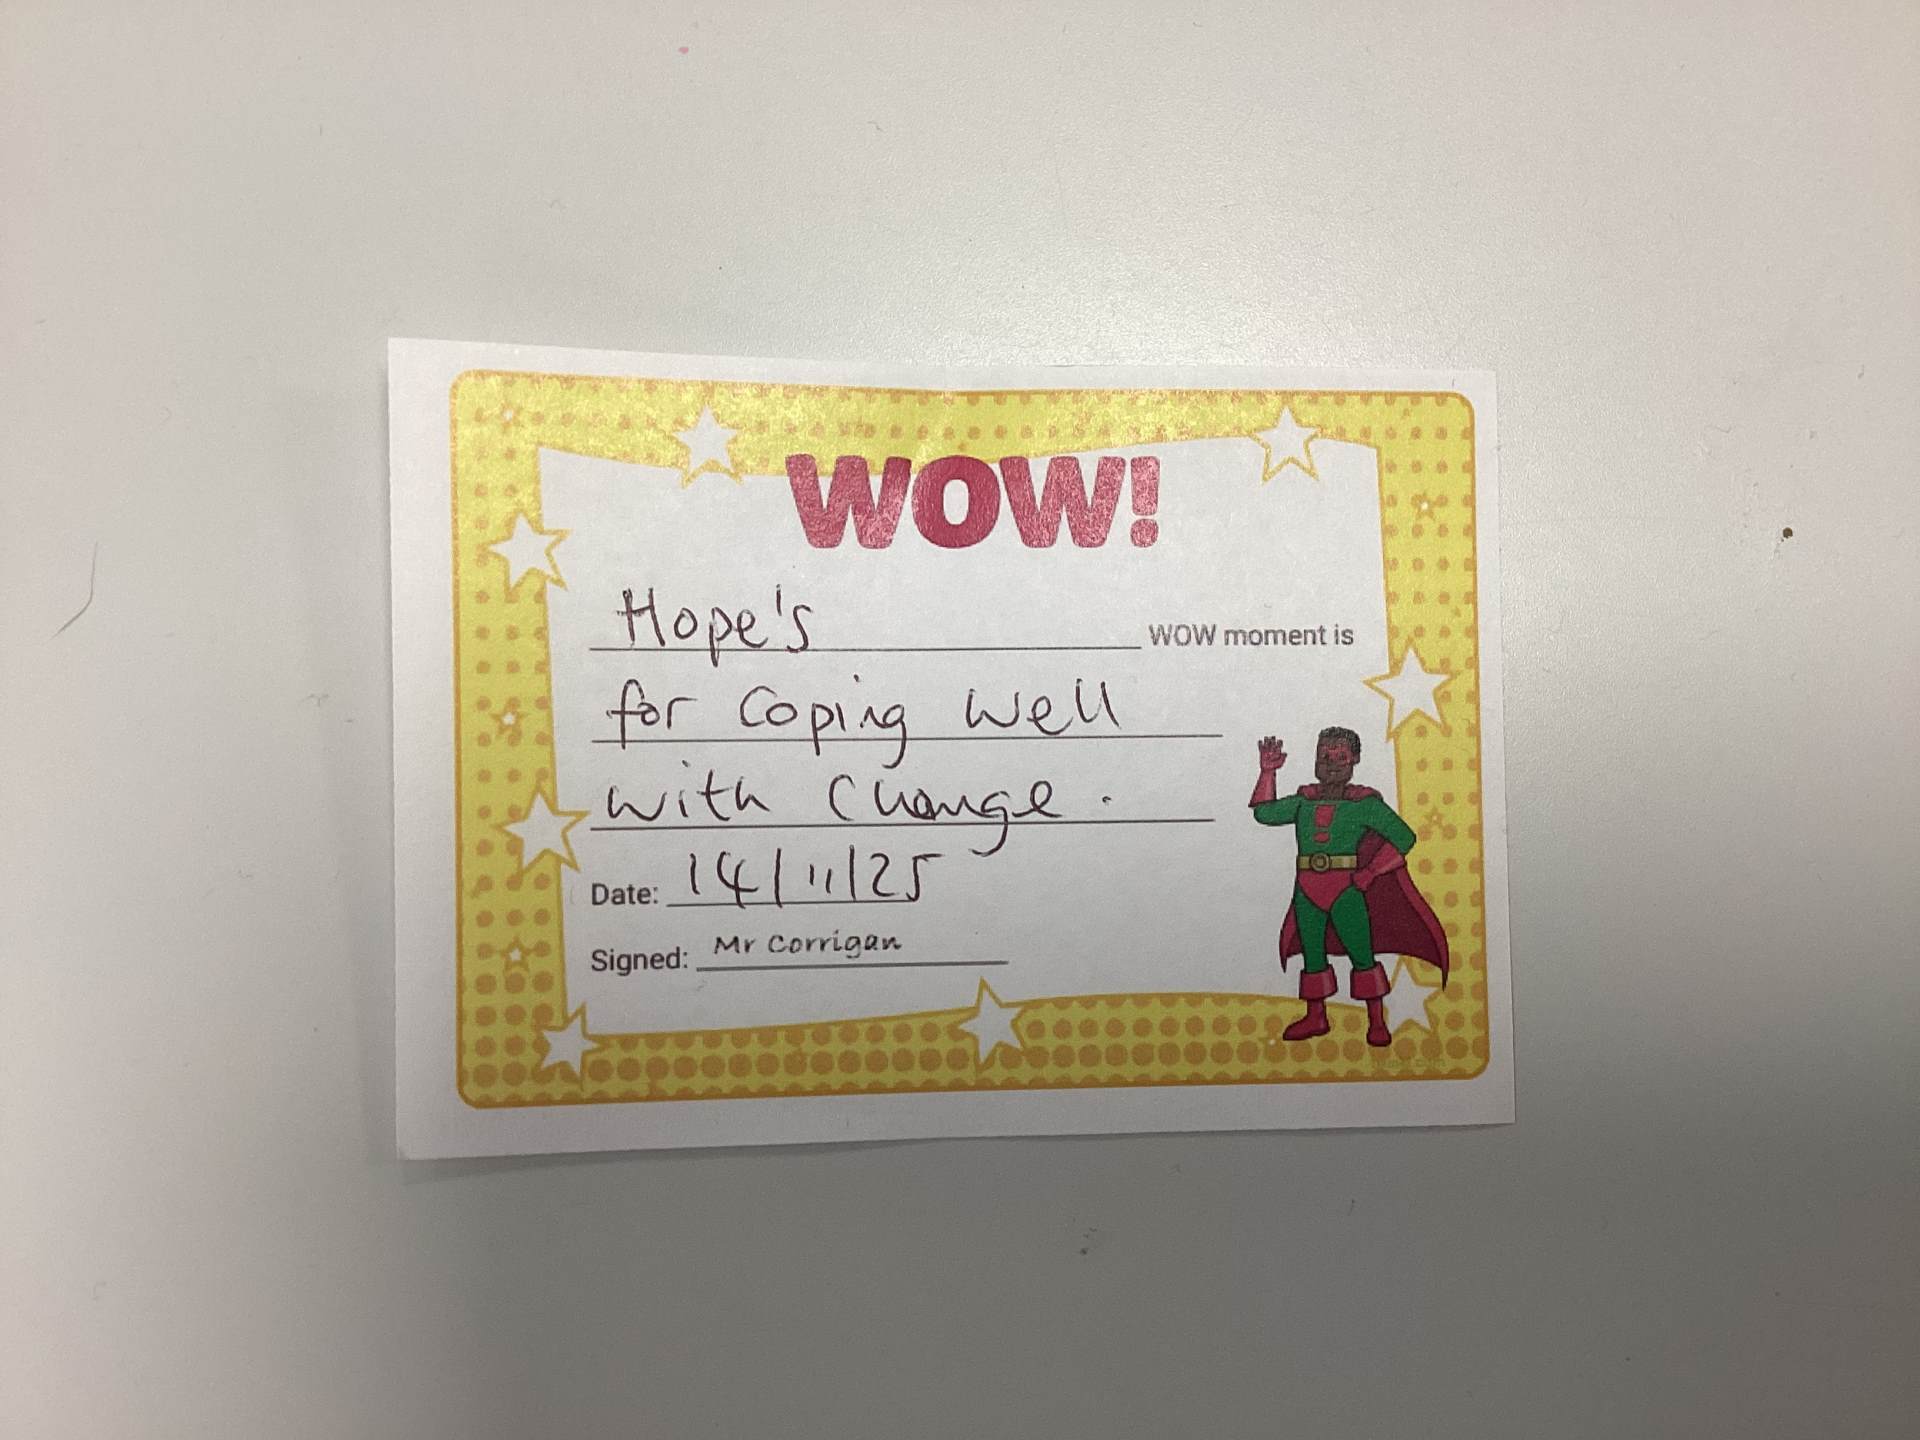 WOW!
Hope's WOW moment is
for coping well
with change.
Date: 14/11/25
Signed: Mr Corrigan